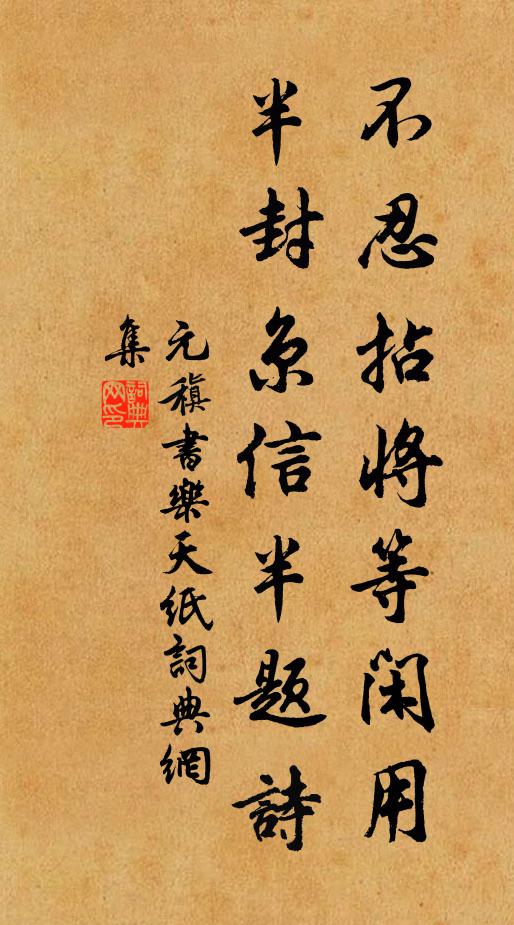 不忍拈將等閑用
半封京信半題詩
元稹書樂天紙詞典網
集
詞典
网印